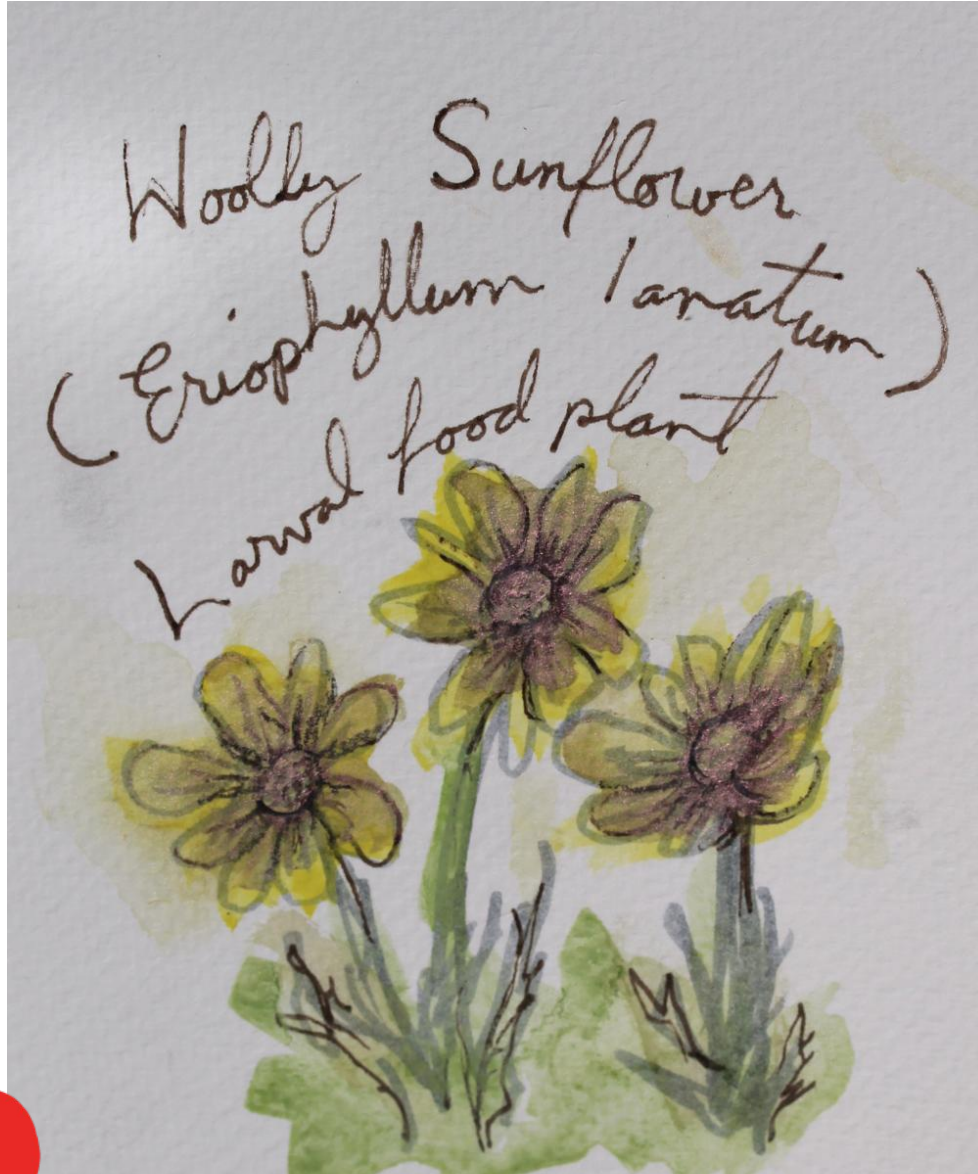 Woolly Sunflower
(Eriophyllum lanatum)
Larval food plant